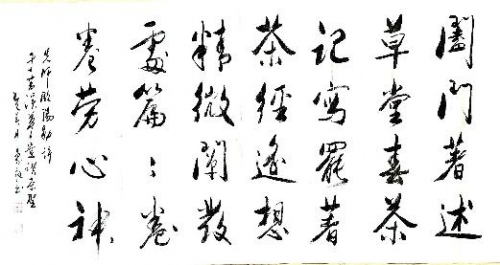 闔門著述
草堂春茶
記寫罷著
茶經遙想
精微闡發
處篇〻卷
卷勞心神
先師歐陽勛詩